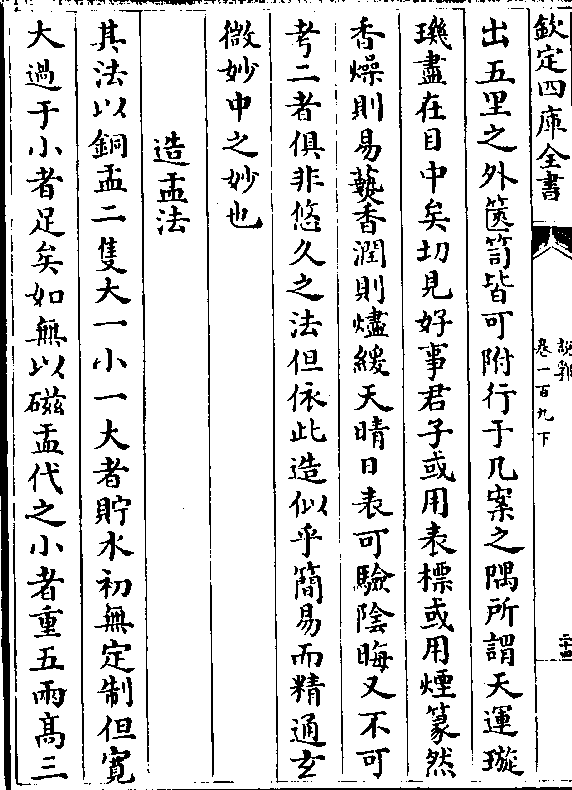 欽定四庫全書
說郛
卷一百九下
二十四
出五里之外篋笥皆可附行于几案之隅所謂天運璇
璣盡在目中矣切見好事君子或用表標或用煙篆然
香燥則易爇香潤則燼緩天晴日表可驗陰晦又不可
考二者俱非悠久之法但依此造似乎簡易而精通玄
微妙中之妙也
造盂法
其法以銅盂二隻大一小一大者貯水初無定制但寬
大過于小者足矣如無以磁盂代之小者重五兩高三